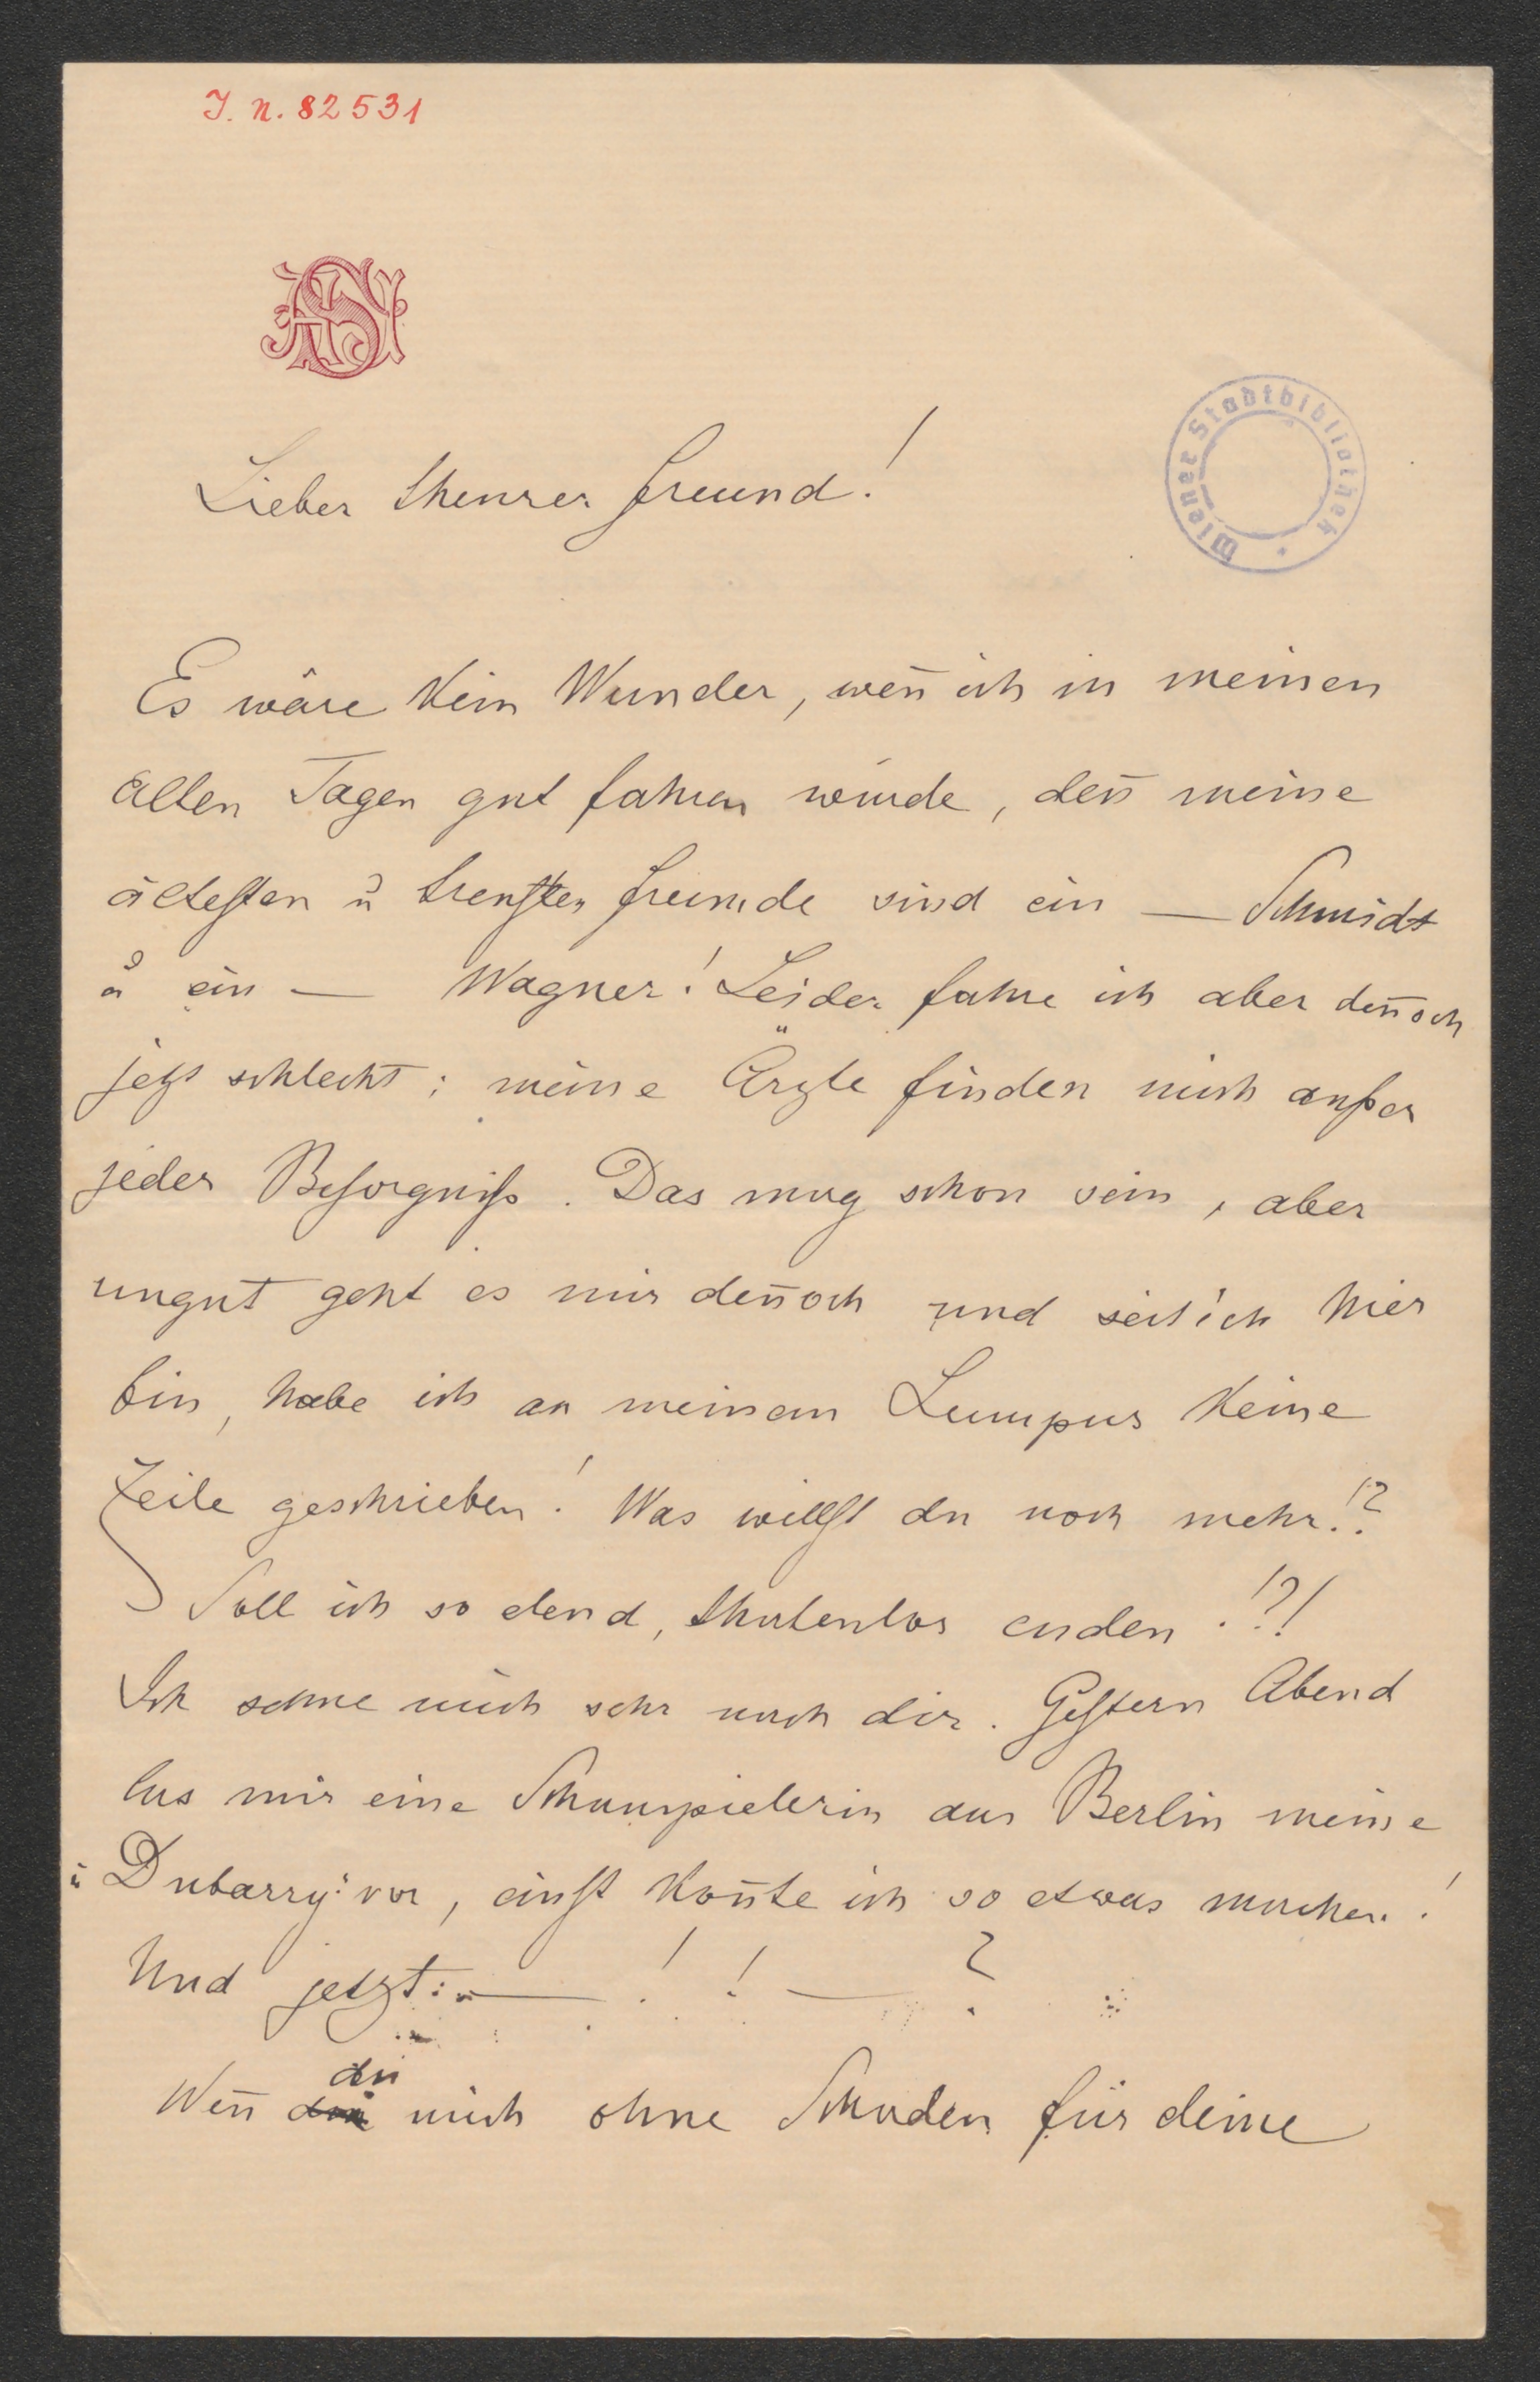 J. N. 82531
Wiener Stadtbibliothek
Lieber theurer Freund!
Es wäre kein Wunder, weñ ich in meinen
alten Tagen gut fahren würde, deñ meine
ältesten u treusten Freunde sind ein — Schmidt
u ein — Wagner! Leider fahre ich aber deñoch
jetzt schlecht; meine Ärzte finden mich außer
jeder Besorgniß. Das mag schon sein, aber
ungut geht es mir deñoch und seit ich hier
bin, habe ich an meinem Lumpus keine
Zeile geschrieben! Was willst du noch mehr!?
Soll ich so elend, thatenlos enden!?!
Ich sehne mich sehr nach dir. Gestern Abend
las mir eine Schauspielerin aus Berlin meine
"Dubarry" vor, einst koñte ich so etwas machen!
Und jetzt: — ! ! — ?
du
Weñ mich ohne Schaden für deine